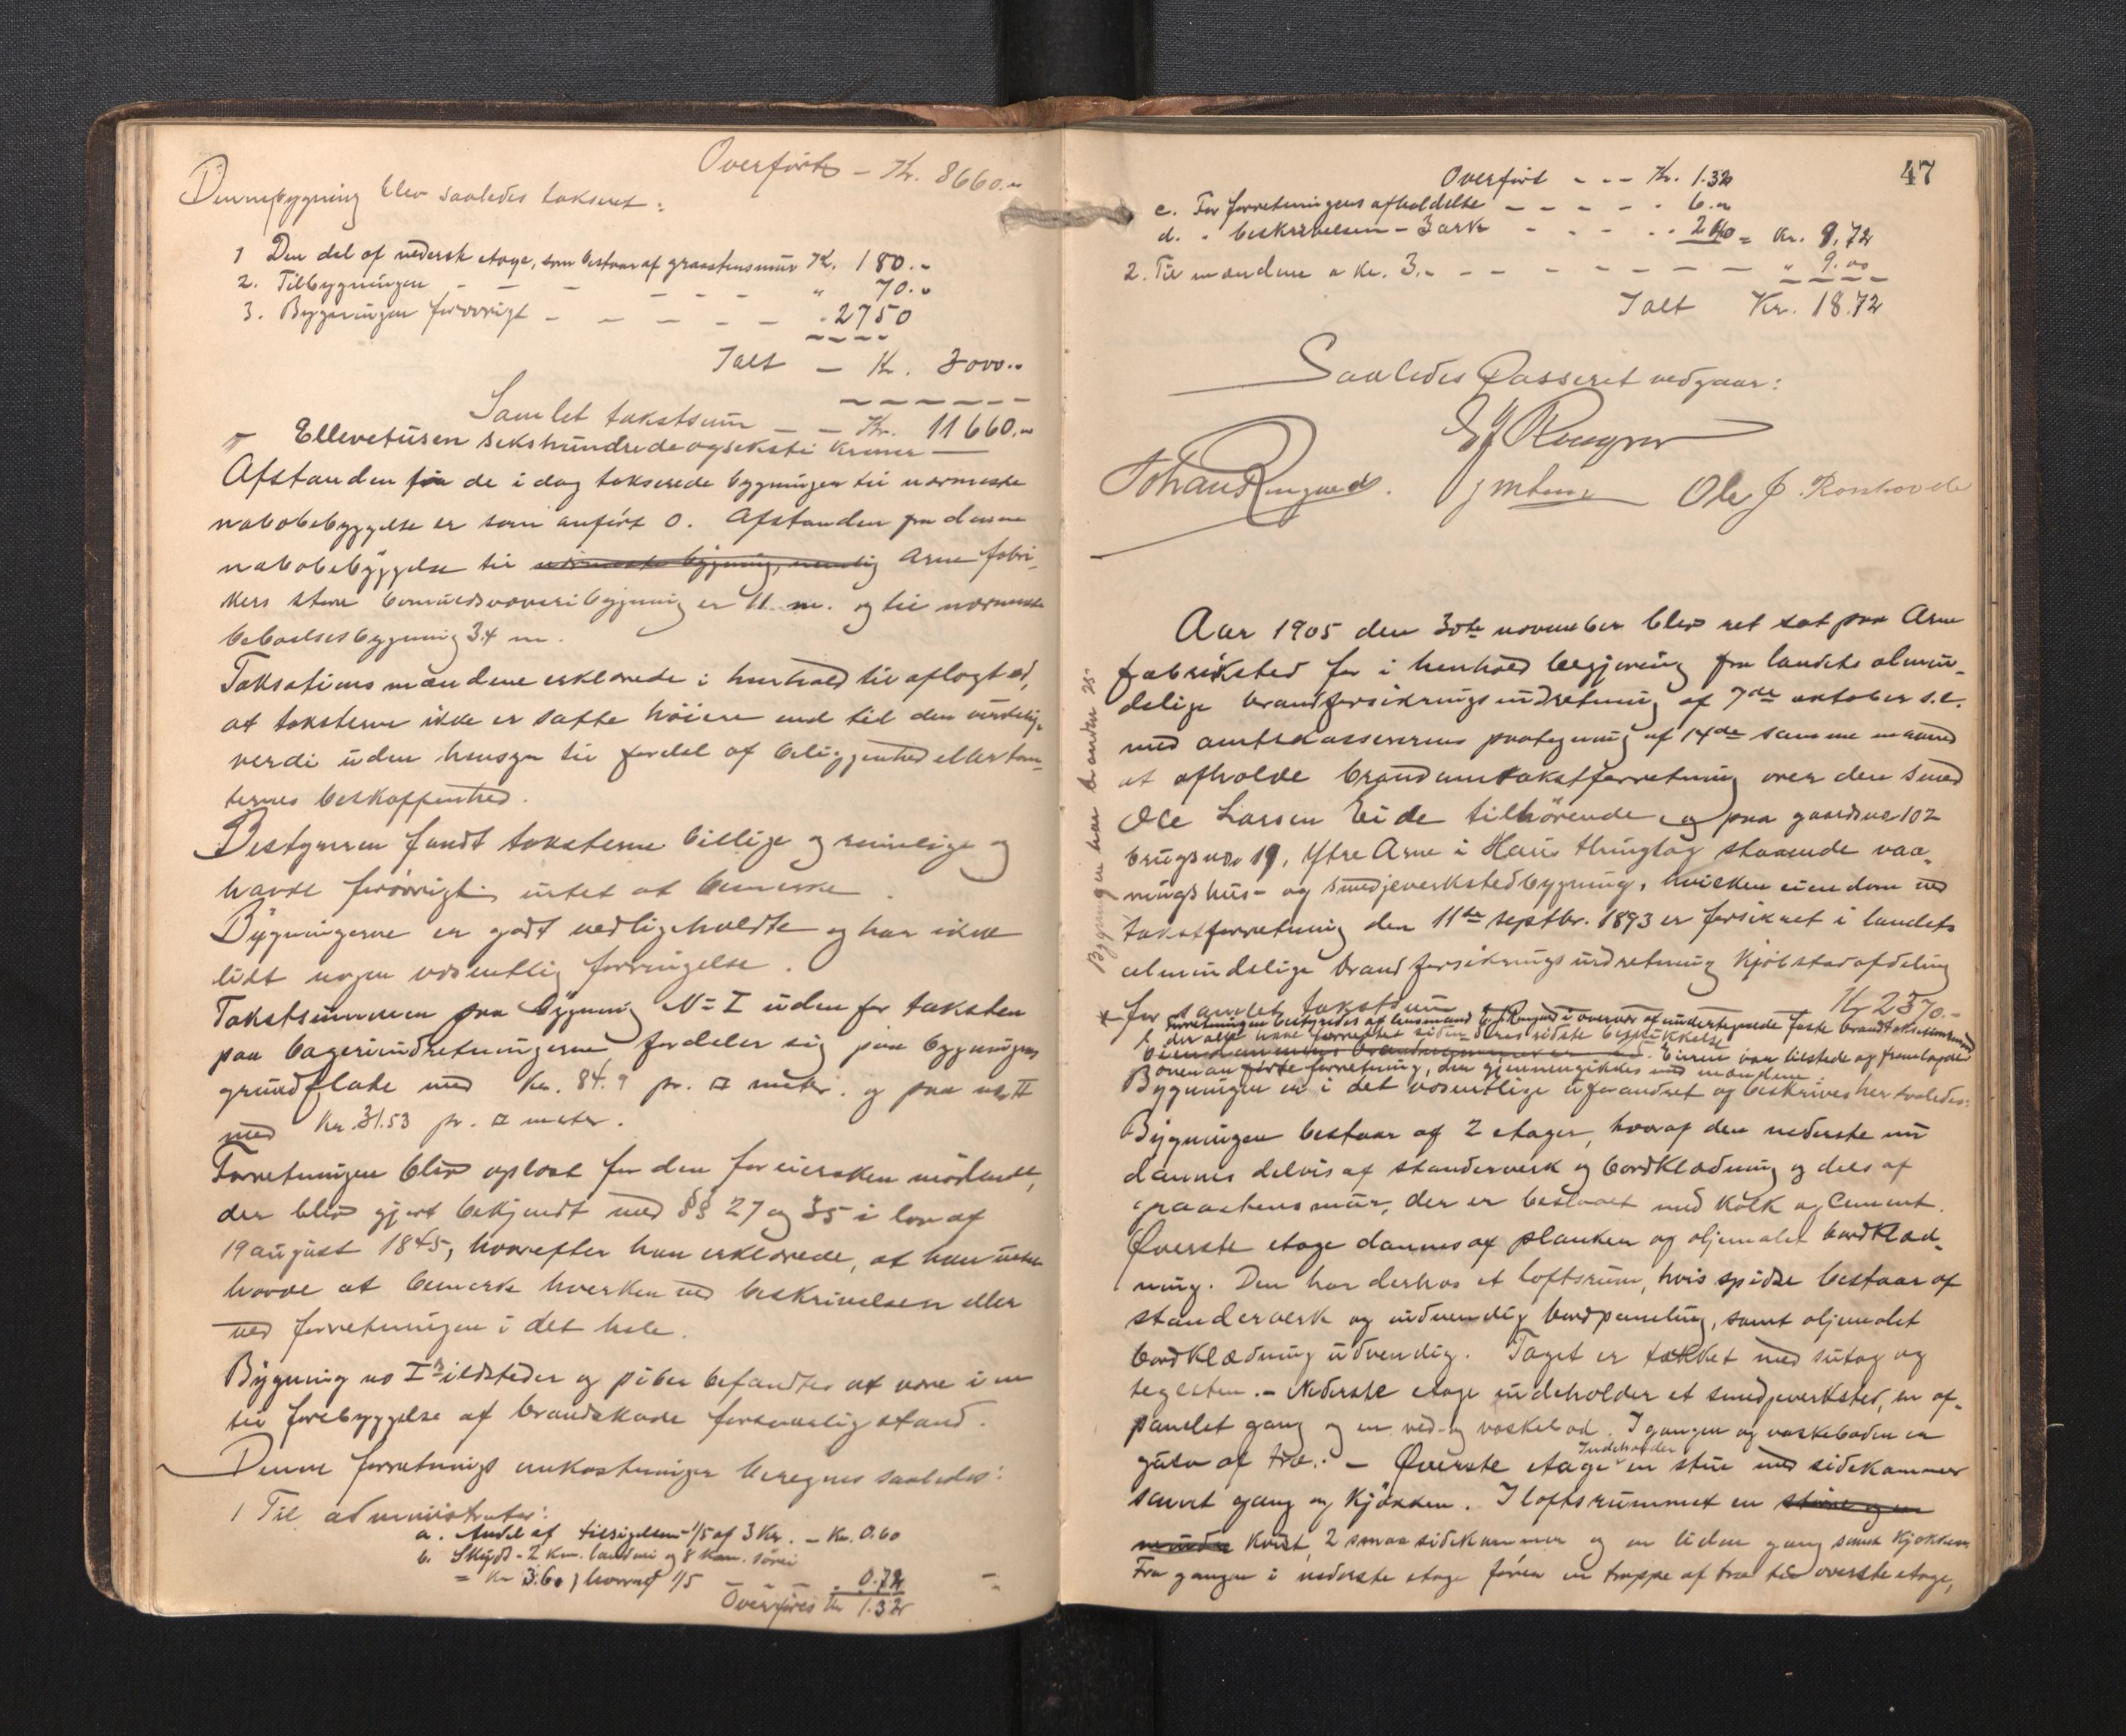 Overført – Kr. 8660.-
Denne bygning blev saaledes takseret:
1 Den del af nederste etage, som bestaar af graastensmur Kr. 180.-
2. Tilbygningen - - - - - - " 70.-
3. Bygningen forøvrigt - - - - - - 2750
Ialt – Kr. 3000.-
Samlet takstsum – – Kr. 11660.-
Ellevetusen sekshundredeogseksti kroner
Afstanden fra de i dag takserede bygninger til nærmeste
nabobebyggelse er som anført 0. Afstanden fra denne
nabobebyggelse til nærmeste bygning, nemlig Arne fabri-
kers store bomuldsvæveribygning er 11 m. og til nærmeste
beboelsesbygning 34 m.
Taksationsmændene erklærede i henhold til aflagt ed,
at taksterne ikke er satte høiere end til den virkelige
verdi uden hensyn til fordel af beliggenhed eller tom-
ternes beskaffenhed.
Bestyreren fandt taksterne billige og rimelige og
havde forøvrigt intet at bemerke.
Bygningerne er godt vedligeholdte og har ikke
lidt nogen væsentlig forringelse.
Takstsummen paa bygning No I uden for taksten
paa bageriindretningerne fordeler sig paa bygningens
grundflate med Kr. 84.9 pr. □ meter. og paa no II
med Kr. 31.53 pr. □ meter.
Forretningen blev oplæst for den for eiersken mødende,
der blev gjort bekjendt med §§ 27 og 35 i lov af
19 august 1845, hvorefter han erklærede, at han intet
havde at bemerke hverken ved beskrivelsen eller
ved forretningen i det hele.
Bygning no I's ildsteder og piber befandtes at være i en
til forebyggelse af brandskade forsvarlig stand.
Denne forretnings omkostninger beregnes saaledes:
1 Til administrator:
a. Andel af tilsigelsen 1/5 af 3 Kr. – Kr. 0.60
b. Skyds - 2 km. landvei og 8 km. sjøvei
= Kr 3.60, hvoraf 1/5 – – – 0.72
Overføres Kr 1.32
47
Overført - - - Kr. 1.32
c. For forretningens afholdelse - - - - - 6.-
d. " beskrivelsen - 3 ark - - - - - 2.40 = Kr. 9.72
2. Til mændene a Kr. 3.- - - - - - - - - " 9.00
Ialt Kr. 18.72
Saaledes Passeret vedgaar:
Johan Ole J.
Bygningen har branden 25-
Aar 1905 den 30te november blev ret sat paa Arne
fabriksted for i henhold begjæring fra landets almin-
delige brandforsikringsindretning af 7de oktober s.e.
med amtskassererens paategning af 14de samme maaned
at afholde brandomtakstforretning over den smed
Ole Larsen Eide tilhørende og paa gaardsno 102
brugsno. 19, Ytre Arne i Haus thinglag staaende vaa-
ningshus- og smedjeverkstedbygning, hvilken eiendom ved
takstforretning den 11te septbr. 1893 er forsikret i landets
almindelige brandforsikringsindretning Kjøbstadafdeling
* for samlet takstsum – – – Kr 2570.-
Forretningen bestyredes af lensmand i overvær af undertegnede faste brandtakstmænd
Eieren var tilstede og fremlagde
ovenanførte forretning, der gjennemgikkes med mændene.
Bygningen er i det væsentlige uforandret og beskrives her saaledes:
Bygningen bestaar af 2 etager, hvoraf den nederste nu
dannes delvis af standerverk og bordklædning og dels af
graastensmur, der er beslaaet med kalk og cement.
Øverste etage dannes af planker og oljemalet bordklæd-
ning. Den har derhos et loftsrum, hvis spidse bestaar af
standerverk og indvendig bordpaneling, samt oljemalet
bordklædning udvendig. Taget er tækket med sutag og
teglsten. - Nederste etage indeholder et smedjeverksted, en af-
panelet gang og en ved- og vaskebod. I gangen og vaskeboden er
gulv af træ. – Øverste etage Indeholder en stue med sidekammer
samt gang og kjøkken. I loftsrummet en stue og en
mindre kvist, 2 smaa sidekammer og en liden gang samt kjøkken.
Fra gangen i nederste etage fører en trappe af træ til øverste etage,